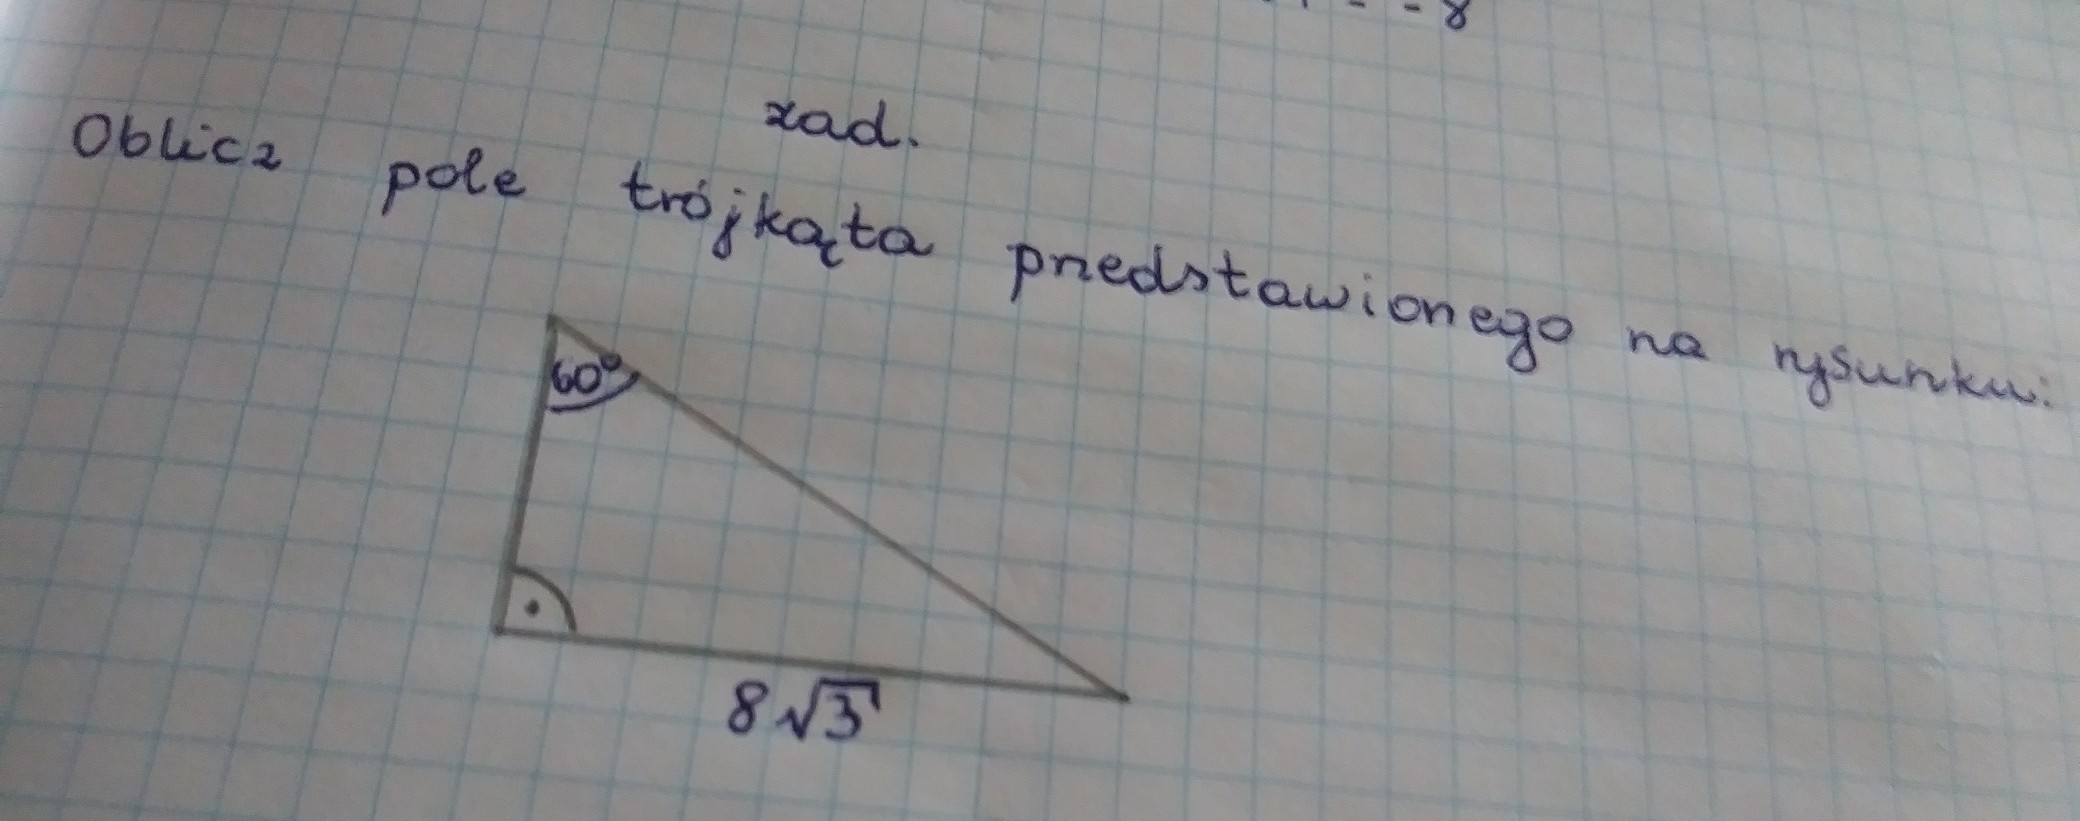 - - 8
zad.
Oblicz pole trójkąta przedstawionego na rysunku:
60°
8√3